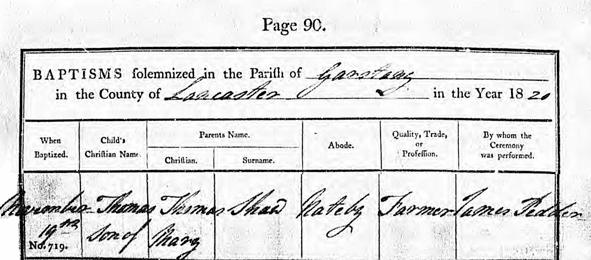 Page 90.
BAPTISMS solemnized in the Parish of Garstang
in the County of Lancaster in the Year 18 20
When Baptized. Child's Christian Name. Parents Name. Christian. Surname. Abode. Quality, Trade, or Profession. By whom the Ceremony was performed.
November Thomas Thomas Shaw Nateby Farmer James Pedder
19th Son of Mary
No. 719.